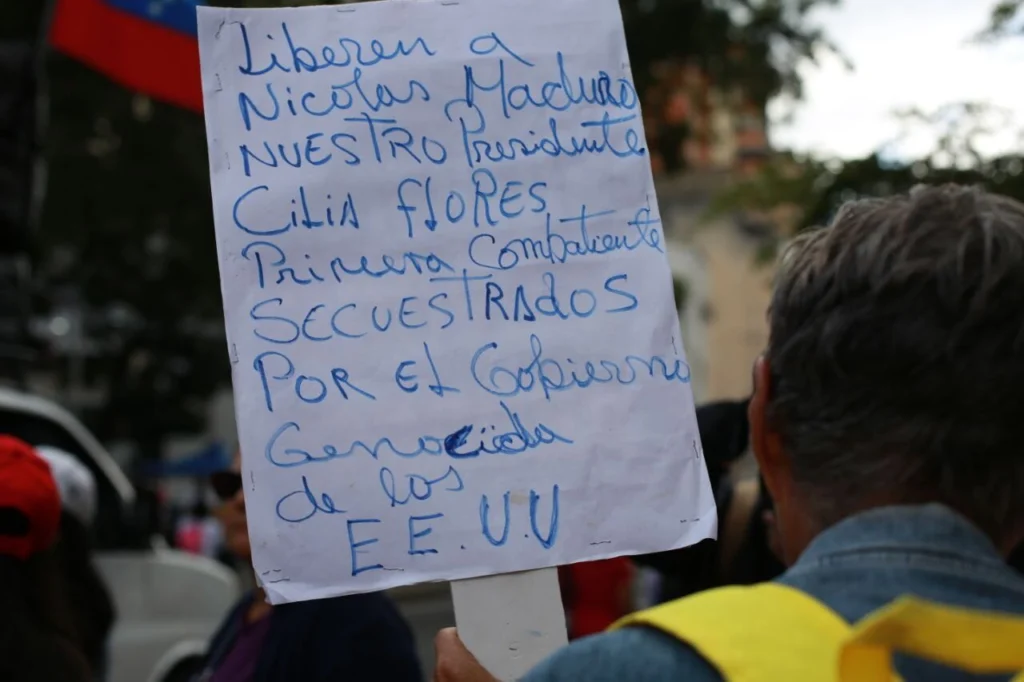 Liberen a
Nicolas Maduro
NUESTRO Presidente
CiLiA flORES
Primera Combatiente
SECUESTRADOS
POR EL Gobierno
Genocida
de los
E E. U.U